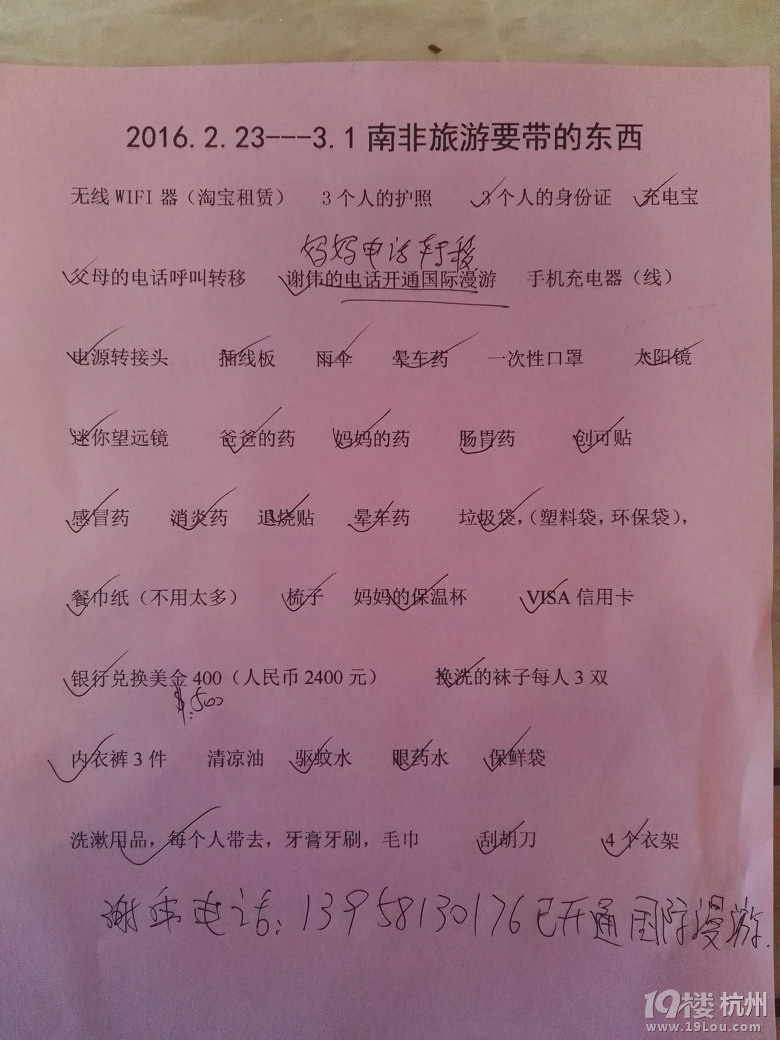 2016.2.23---3.1南非旅游要带的东西
无线WIFI器（淘宝租赁） 3个人的护照 3个人的身份证 充电宝
妈妈电话转移
父母的电话呼叫转移 谢伟的电话开通国际漫游 手机充电器（线）
电源转接头 插线板 雨伞 晕车药 一次性口罩 太阳镜
迷你望远镜 爸爸的药 妈妈的药 肠胃药 创可贴
感冒药 消炎药 退烧贴 晕车药 垃圾袋，（塑料袋，环保袋），
餐巾纸（不用太多） 梳子 妈妈的保温杯 VISA信用卡
银行兑换美金400（人民币2400元） 换洗的袜子每人3双
$:500
内衣裤3件 清凉油 驱蚊水 眼药水 保鲜袋
洗漱用品，每个人带去，牙膏牙刷，毛巾 刮胡刀 4个衣架
谢伟电话：13958130176已开通国际漫游.
19楼 杭州
www.19Lou.com